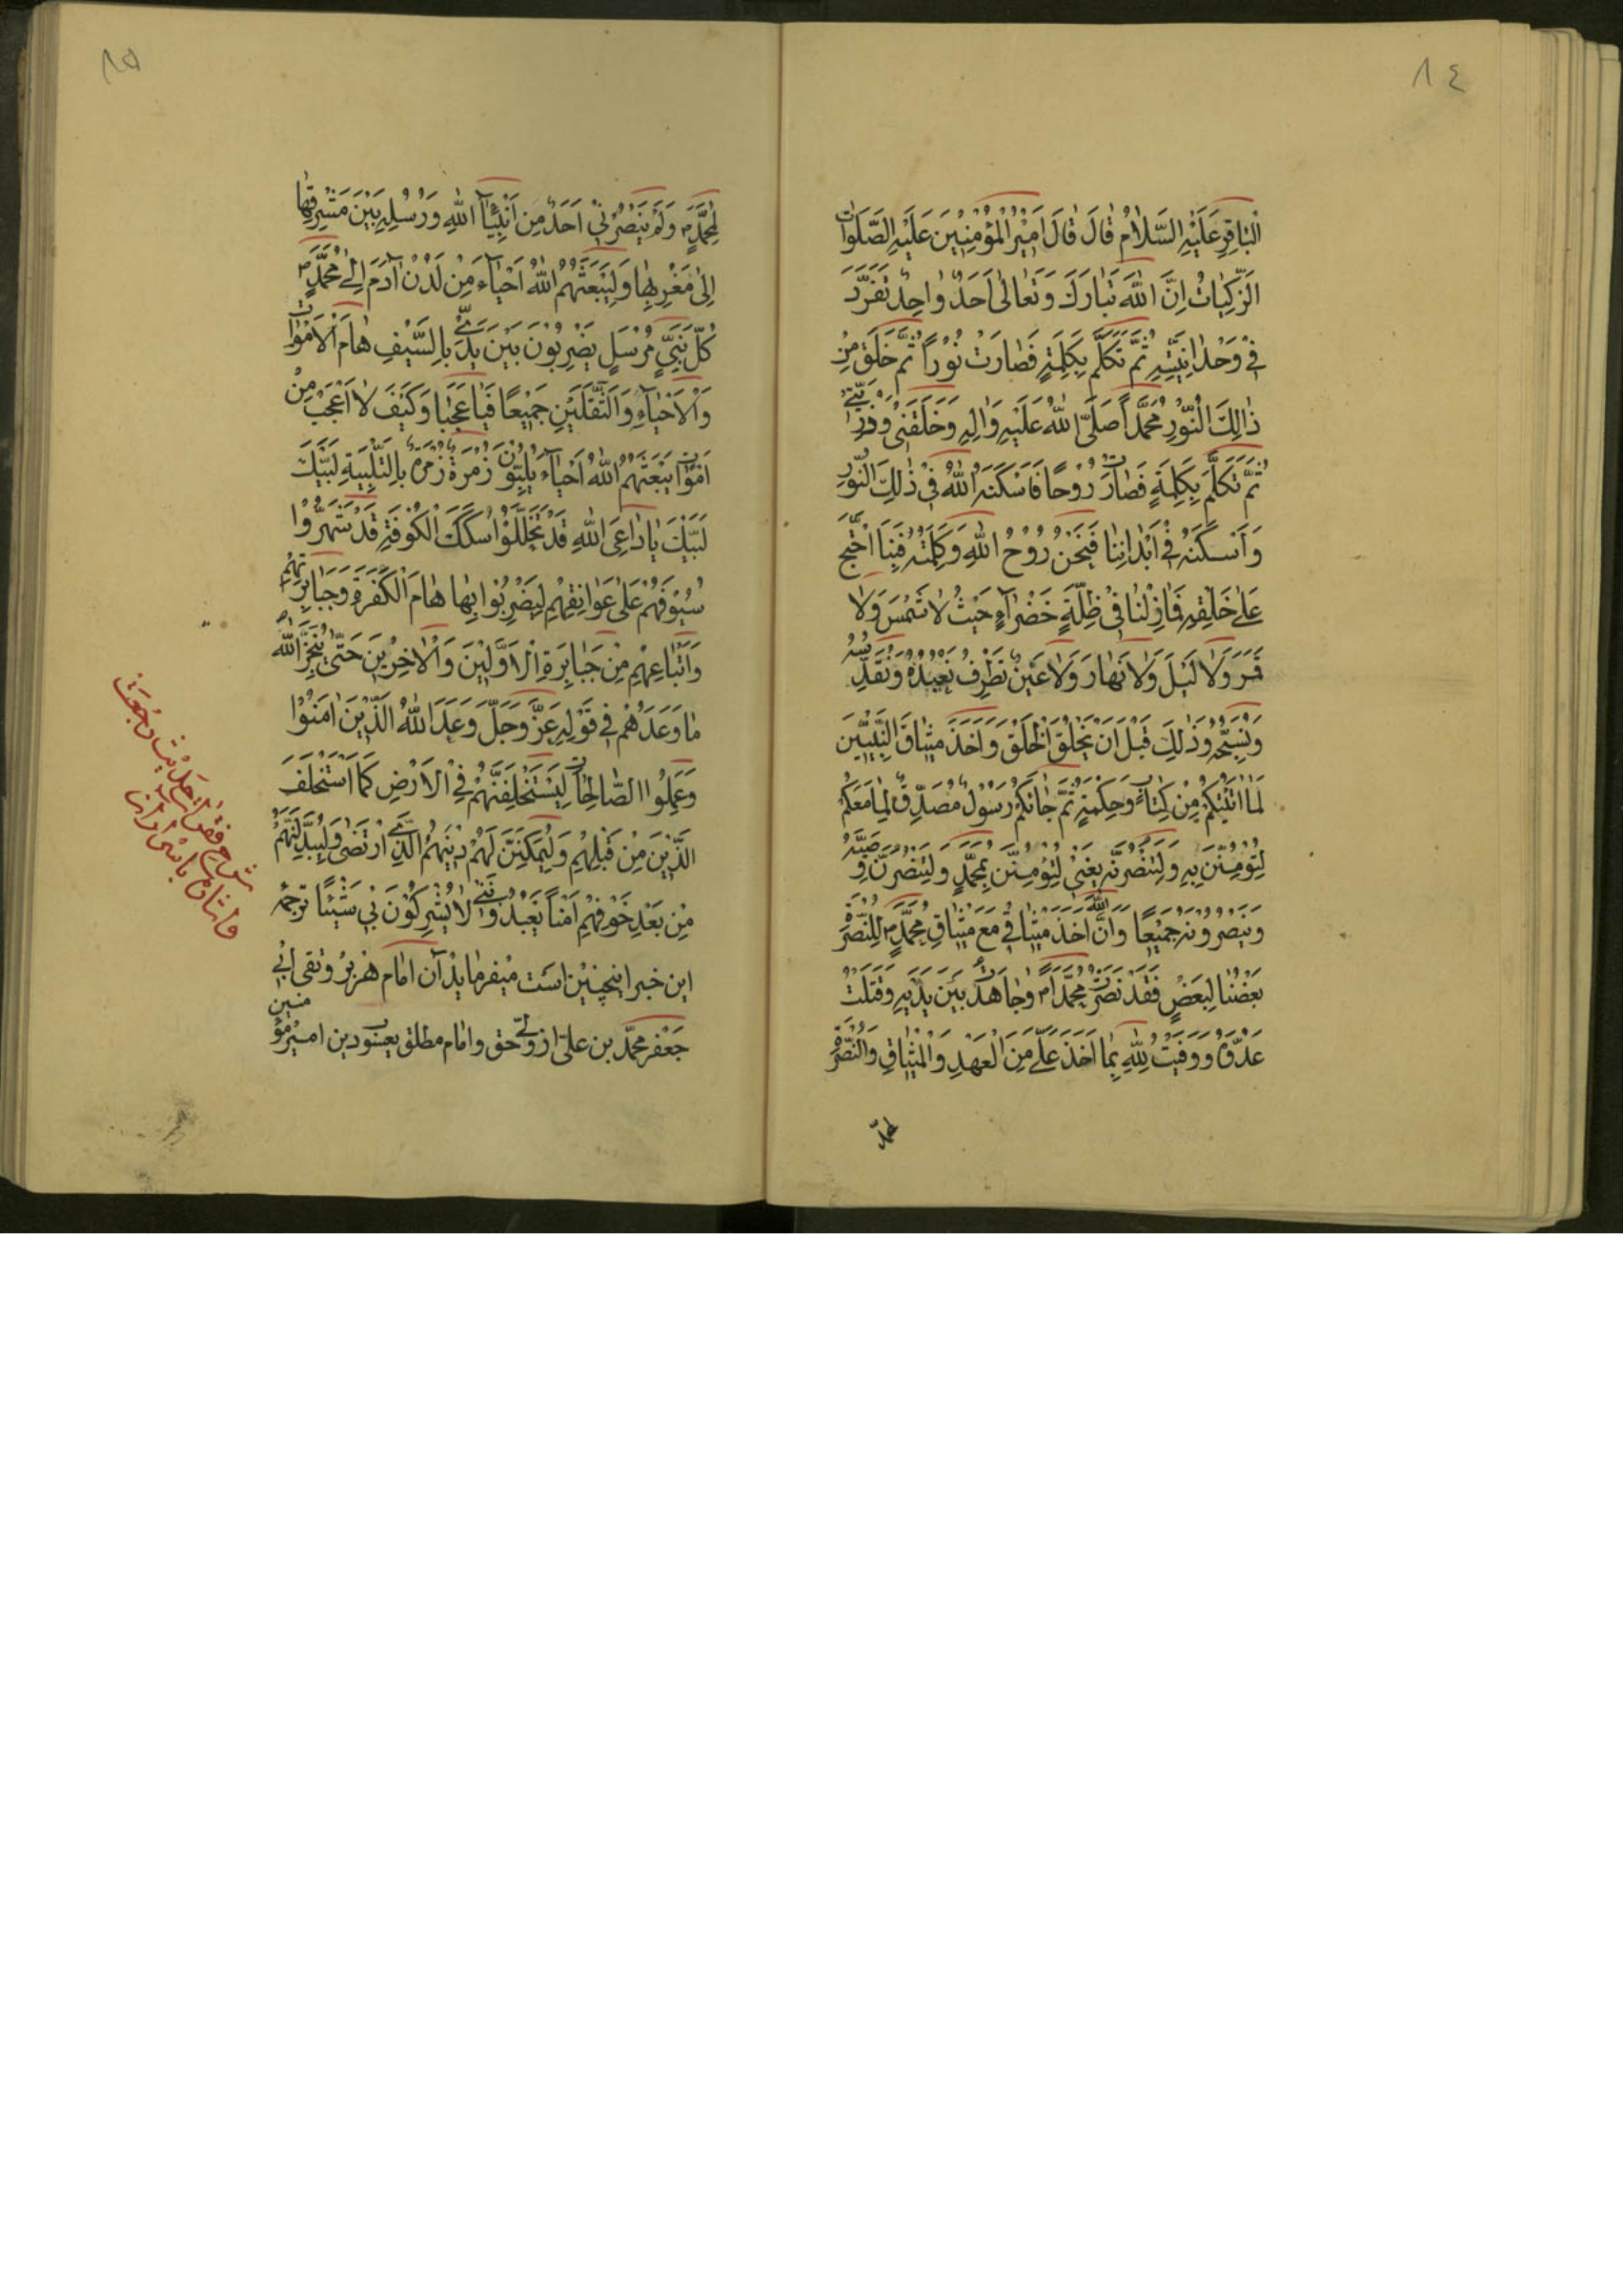 ٨٤
الْبَاقِرِ عَلَيْهِ السَّلَامُ قَالَ قَالَ اَمِيْرُ الْمُؤْمِنِيْنَ عَلَيْهِ الصَّلَوَاتُ
الزَّكِيَاتُ اِنَّ اللهَ تَبَارَكَ وَتَعَالٰى اَحَدٌ وَاحِدٌ تَفَرَّدَ
فِيْ وَحْدَانِيَّتِهِ ثُمَّ تَكَلَّمَ بِكَلِمَةٍ فَصَارَتْ نُوْرًا ثُمَّ خَلَقَ مِنْ
ذَالِكَ النُّوْرِ مُحَمَّدًا صَلَّى اللهُ عَلَيْهِ وَاٰلِهِ وَخَلَقَنِيْ وَذُرِّيَّتِيْ
ثُمَّ تَكَلَّمَ بِكَلِمَةٍ فَصَارَتْ رُوْحًا فَاَسْكَنَهُ اللهُ فِيْ ذٰلِكَ النُّوْرِ
وَاَسْكَنَهُ فِيْ اَبْدَانِنَا فَنَحْنُ رُوْحُ اللهِ وَكَلِمَتُهُ فَبِنَا احْتَجَّ
عَلٰى خَلْقِهِ فَمَا زِلْنَا فِيْ ظِلَّةٍ خَضْرَاءٍ حَيْثُ لَا شَمْسَ وَلَا
قَمَرَ وَلَا لَيْلَ وَلَا نَهَارَ وَلَا عَيْنٌ تَطْرِفُ نَعْبُدُهُ وَنُقَدِّسُهُ
وَنُسَبِّحُهُ وَذٰلِكَ قَبْلَ اَنْ يَخْلُقَ الْخَلْقَ وَاَخَذَ مِيْثَاقَ النَّبِيِّيْنَ
لَمَا اٰتَيْتُكُمْ مِنْ كِتَابٍ وَحِكْمَةٍ ثُمَّ جَائَكُمْ رَسُوْلٌ مُصَدِّقٌ لِمَا مَعَكُمْ
لَتُؤْمِنُنَّ بِهِ وَلَتَنْصُرُنَّهُ يَعْنِيْ لَتُؤْمِنُنَّ بِمُحَمَّدٍ وَلَتَنْصُرُنَّ وَصِيَّهُ
وَيَنْصُرُوْنَهُ جَمِيْعًا وَاَنَّ اللهَ اَخَذَ مِيْثَاقِيْ مَعَ مِيْثَاقِ مُحَمَّدٍ ص لِلنُّصْرَةِ
بَعْضُنَا لِبَعْضٍ فَقَدْ نَصَرْتُ مُحَمَّدًا ص وَجَاهَدْتُ بَيْنَ يَدَيْهِ وَقَتَلْتُ
عَدُوَّهُ وَوَفَيْتُ لِلّٰهِ بِمَا اَخَذَ عَلَيَّ مِنَ الْعَهْدِ وَالْمِيْثَاقِ وَالنُّصْرَةِ
لمحمّد
٨٥
لِمُحَمَّدٍ ص وَلَمْ يَنْصُرْنِيْ اَحَدٌ مِنْ اَنْبِيَاءِ اللهِ وَرُسُلِهِ بَيْنَ مَشْرِقِهَا
اِلٰى مَغْرِبِهَا وَلَيَبْعَثَنَّهُمُ اللهُ اَحْيَاءً مِنْ لَدُنْ اٰدَمَ اِلٰى مُحَمَّدٍ ص
كُلَّ نَبِيٍّ مُرْسَلٍ يَضْرِبُوْنَ بَيْنَ يَدَيَّ بِالسَّيْفِ هَامَ الْاَمْوَاتِ
وَالْاَحْيَاءِ وَالثَّقَلَيْنِ جَمِيْعًا فَيَا عَجَبَا وَكَيْفَ لَا اَعْجَبُ مِنْ
اَمْوَاتٍ يَبْعَثُهُمُ اللهُ اَحْيَاءً يُلَبُّوْنَ زُمْرَةً زُمْرَةً بِالتَّلْبِيَةِ لَبَّيْكَ
لَبَّيْكَ يَا دَاعِيَ اللهِ قَدْ تَخَلَّلُوْا سِكَكَ الْكُوْفَةِ قَدْ شَهَرُوْا
سُيُوْفَهُمْ عَلٰى عَوَاتِقِهِمْ لِيَضْرِبُوْا بِهَا هَامَ الْكَفَرَةِ وَجَبَابِرَتِهِمْ
وَاَتْبَاعِهِمْ مِنْ جَبَابِرَةِ الْاَوَّلِيْنَ وَالْاٰخِرِيْنَ حَتّٰى يُنْجِزَ اللهُ
مَا وَعَدَهُمْ فِيْ قَوْلِهِ عَزَّ وَجَلَّ وَعَدَ اللهُ الَّذِيْنَ اٰمَنُوْا
وَعَمِلُوا الصَّالِحَاتِ لَيَسْتَخْلِفَنَّهُمْ فِيْ الْاَرْضِ كَمَا اسْتَخْلَفَ
الَّذِيْنَ مِنْ قَبْلِهِمْ وَلَيُمَكِّنَنَّ لَهُمْ دِيْنَهُمُ الَّذِيْ ارْتَضٰى وَلَيُبَدِّلَنَّهُمْ
مِنْ بَعْدِ خَوْفِهِمْ اَمْنًا يَعْبُدُوْنَنِيْ لَا يُشْرِكُوْنَ بِيْ شَيْئًا ترجمهٔ
این خبر اینچنین است میفرماید آن امام هزبر و تقی ابی
جعفر محمّد بن علی از ولیّ حق و امام مطلق یعسوب دین امیر مؤمنین